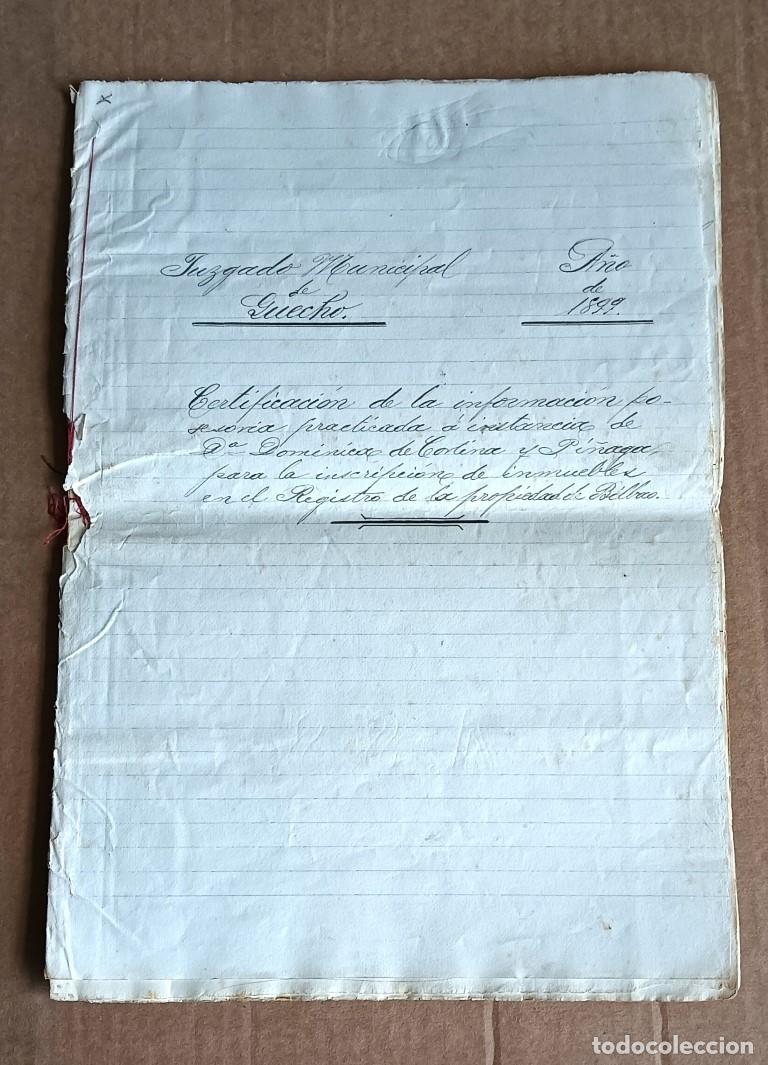 x
Juzgado Municipal
de
Guecho.
Año
de
1899.
Certificación de la información po-
sesoria practicada á instancia de
Dª Dominica de Cortina y Piñaga,
para la inscripción de inmuebles
en el Registro de la propiedad de Bilbao.
todocoleccion